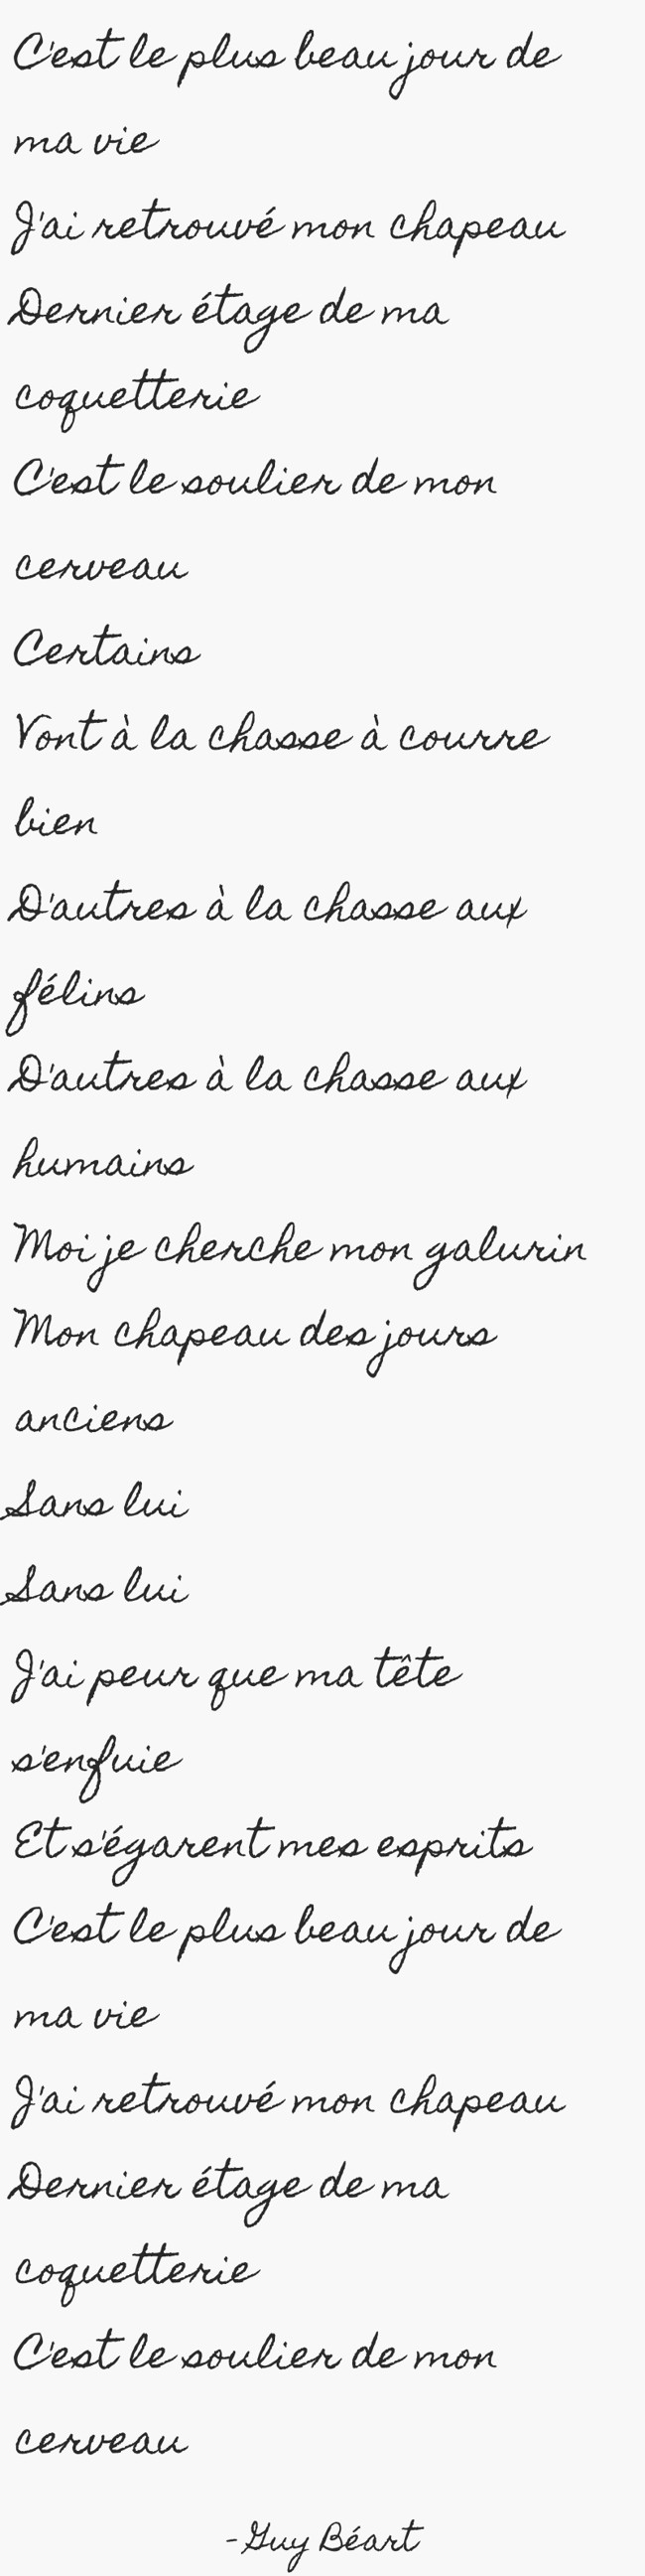 C'est le plus beau jour de
ma vie
J'ai retrouvé mon chapeau
Dernier étage de ma
coquetterie
C'est le soulier de mon
cerveau
Certains
Vont à la chasse à courre
bien
D'autres à la chasse aux
félins
D'autres à la chasse aux
humains
Moi je cherche mon galurin
Mon chapeau des jours
anciens
Sans lui
Sans lui
J'ai peur que ma tête
s'enfuie
Et s'égarent mes esprits
C'est le plus beau jour de
ma vie
J'ai retrouvé mon chapeau
Dernier étage de ma
coquetterie
C'est le soulier de mon
cerveau
-Guy Béart